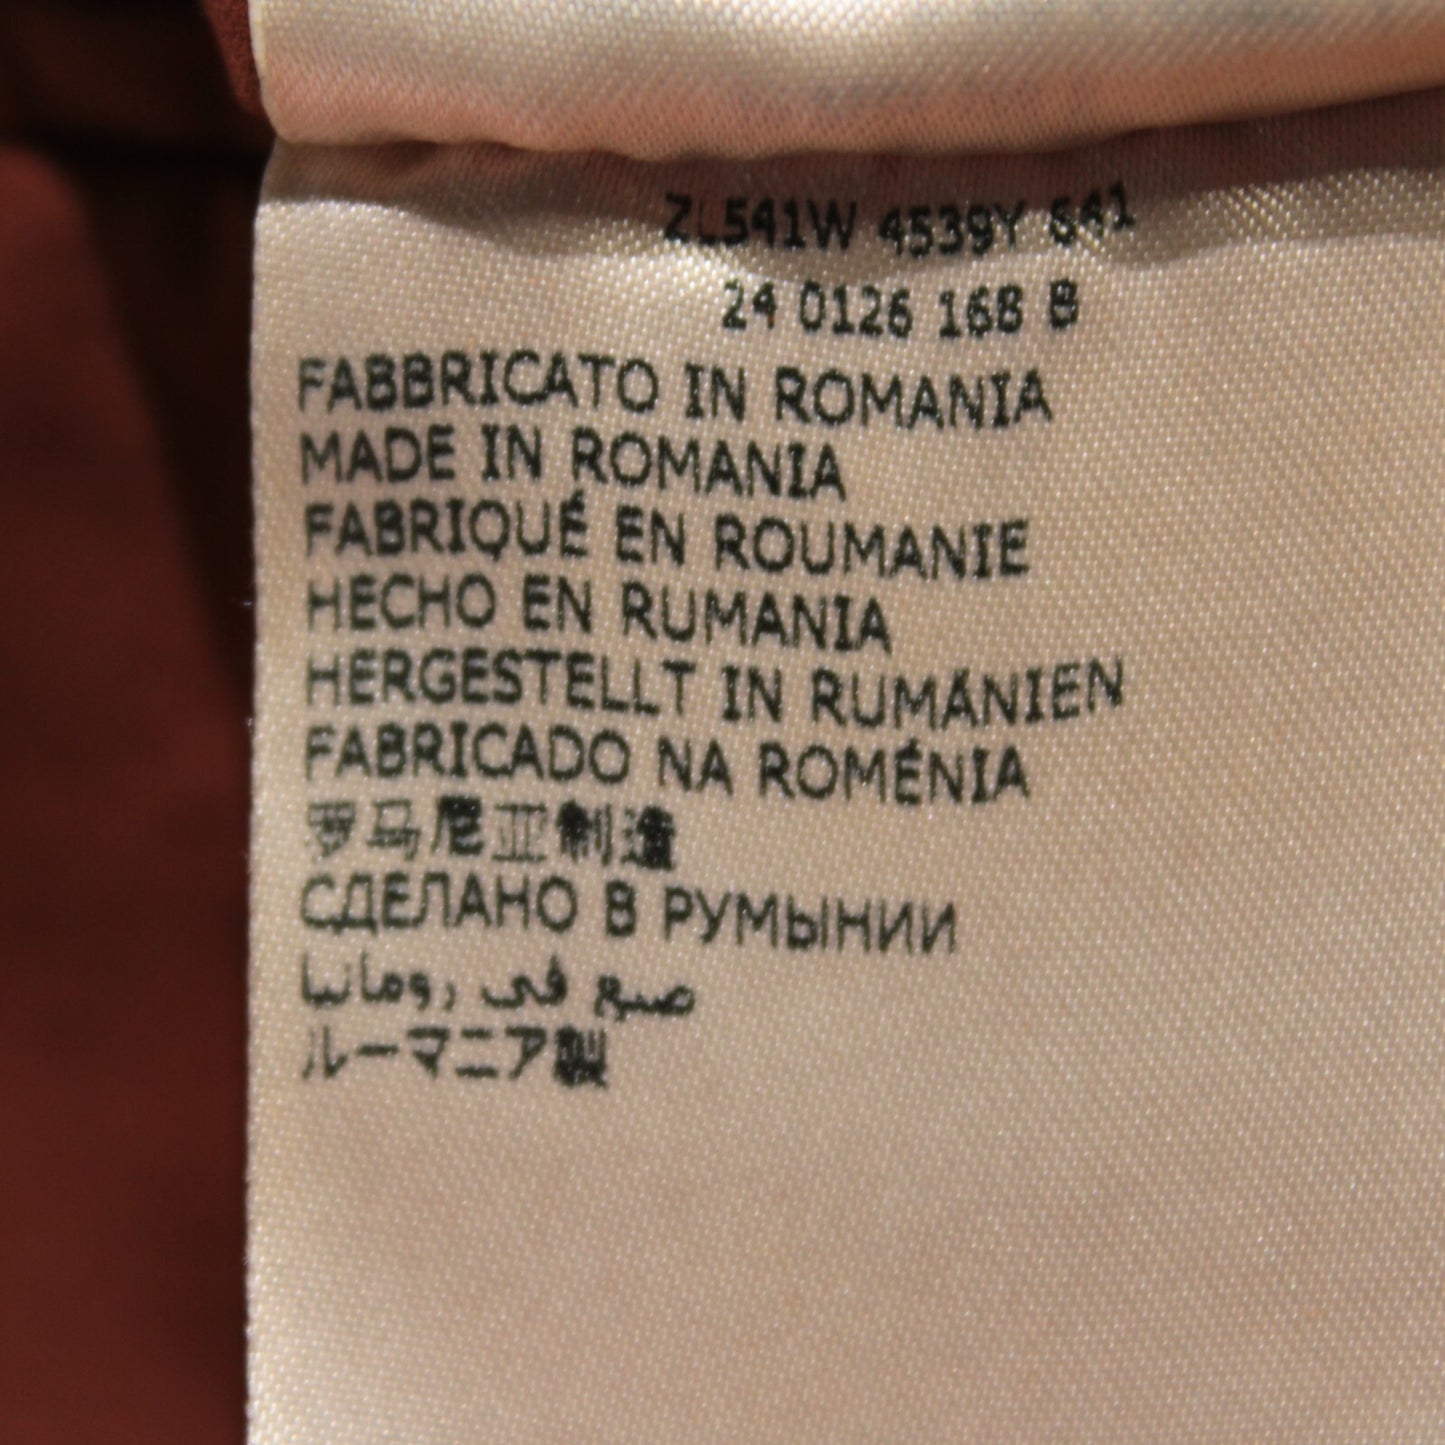 ZL541W 4539Y 641
24 0126 168 8
FABBRICATO IN ROMANIA
MADE IN ROMANIA
FABRIQUÉ EN ROUMANIE
HECHO EN RUMANIA
HERGESTELLT IN RUMÁNIEN
FABRICADO NA ROMÉNIA
罗马尼亚制造
СДЕЛАНО В РУМЫНИИ
صنع في رومانيا
ルーマニア製